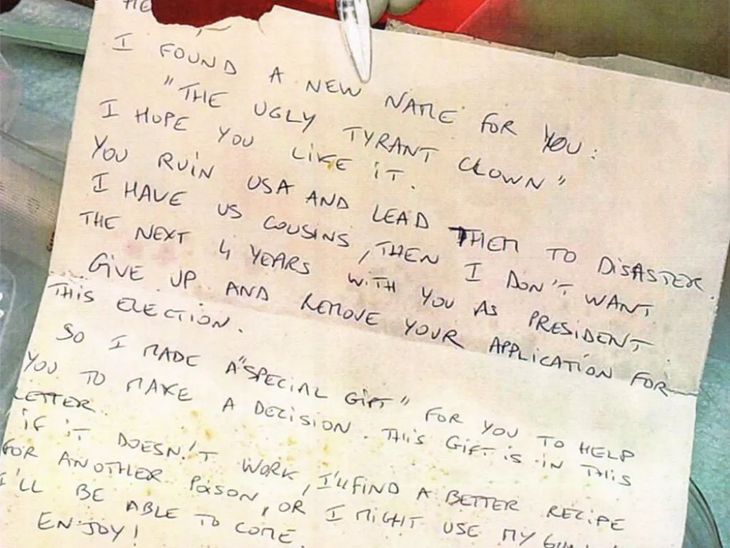 I FOUND A NEW NAME FOR YOU:
"THE UGLY TYRANT CLOWN"
I HOPE YOU LIKE IT.
YOU RUIN USA AND LEAD THEM TO DISASTER.
I HAVE US COUSINS, THEN I DON'T WANT
THE NEXT 4 YEARS WITH YOU AS PRESIDENT.
GIVE UP AND REMOVE YOUR APPLICATION FOR
THIS ELECTION.
SO I MADE A "SPECIAL GIFT" FOR YOU TO HELP
YOU TO MAKE A DECISION. THIS GIFT IS IN THIS
LETTER.
IF IT DOESN'T WORK, I'LL FIND A BETTER RECIPE
FOR ANOTHER POISON, OR I MIGHT USE MY
I'LL BE ABLE TO COME.
ENJOY!